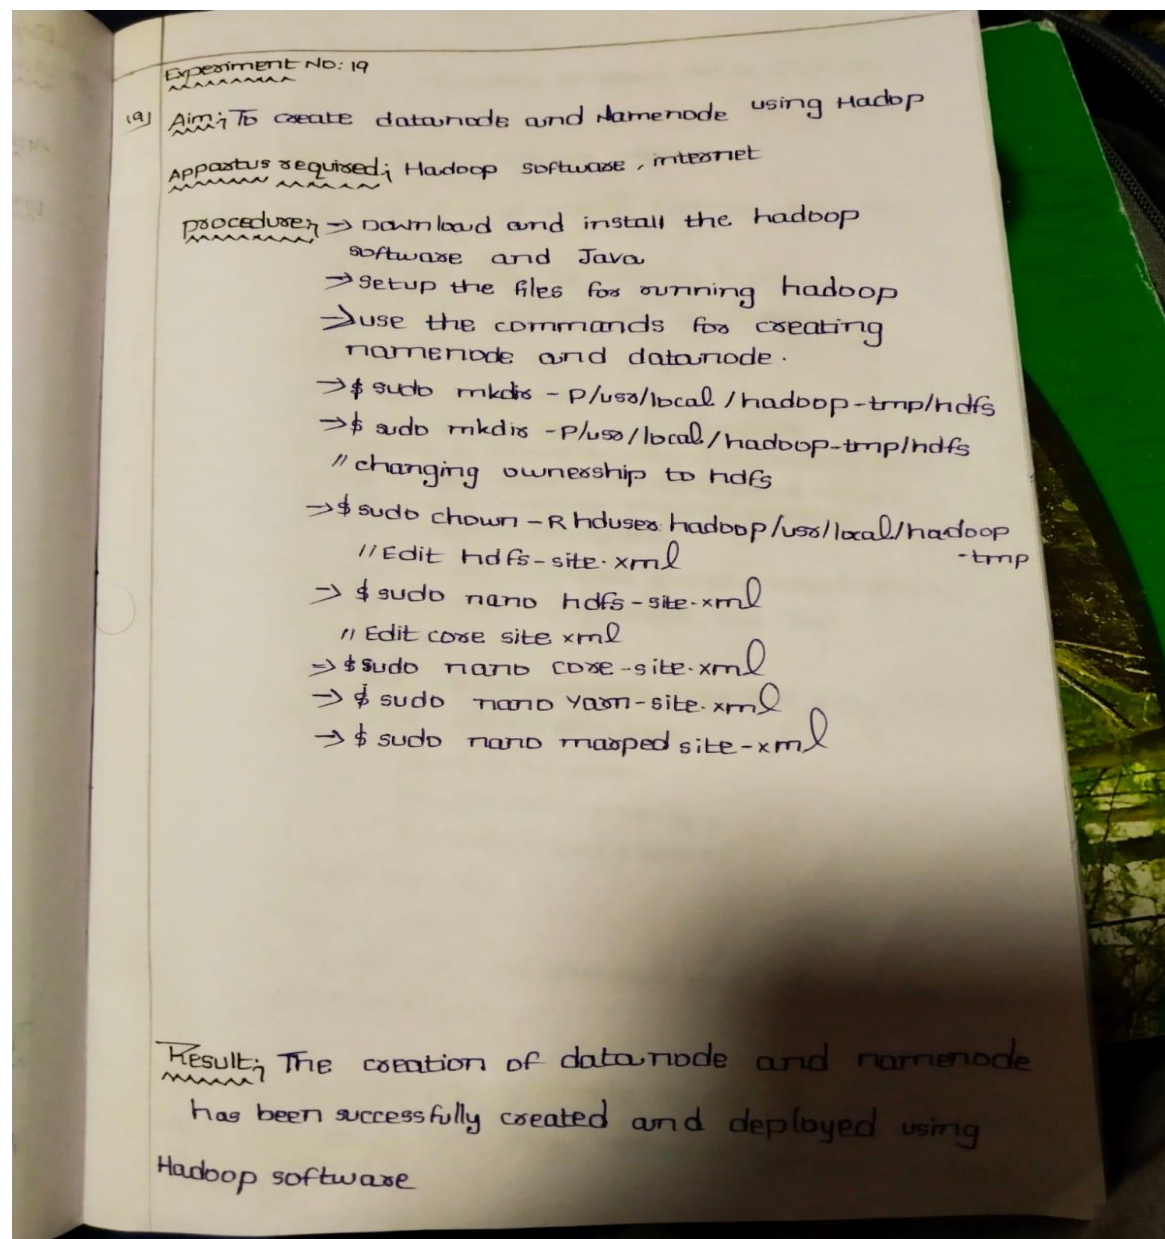 Experiment No: 19
19) Aim; To create datanode and Namenode using Hadop
Appartus required; Hadoop software, internet
procedure; → Download and install the hadoop
software and Java
→ setup the files for running hadoop
→ use the commands for creating
namenode and datanode.
→ $ sudo mkdir -p/usr/local/hadoop-tmp/hdfs
→ $ sudo mkdir -p/usr/local/hadoop-tmp/hdfs
// changing ownership to hdfs
→ $ sudo chown -R hduser hadoop/usr/local/hadoop
-tmp
// Edit hdfs-site.xml
→ $ sudo nano hdfs-site.xml
// Edit core site xml
→ $ sudo nano core-site.xml
→ $ sudo nano yarn-site.xml
→ $ sudo nano marped site-xml
Result; The creation of datanode and namenode
has been successfully created and deployed using
Hadoop software